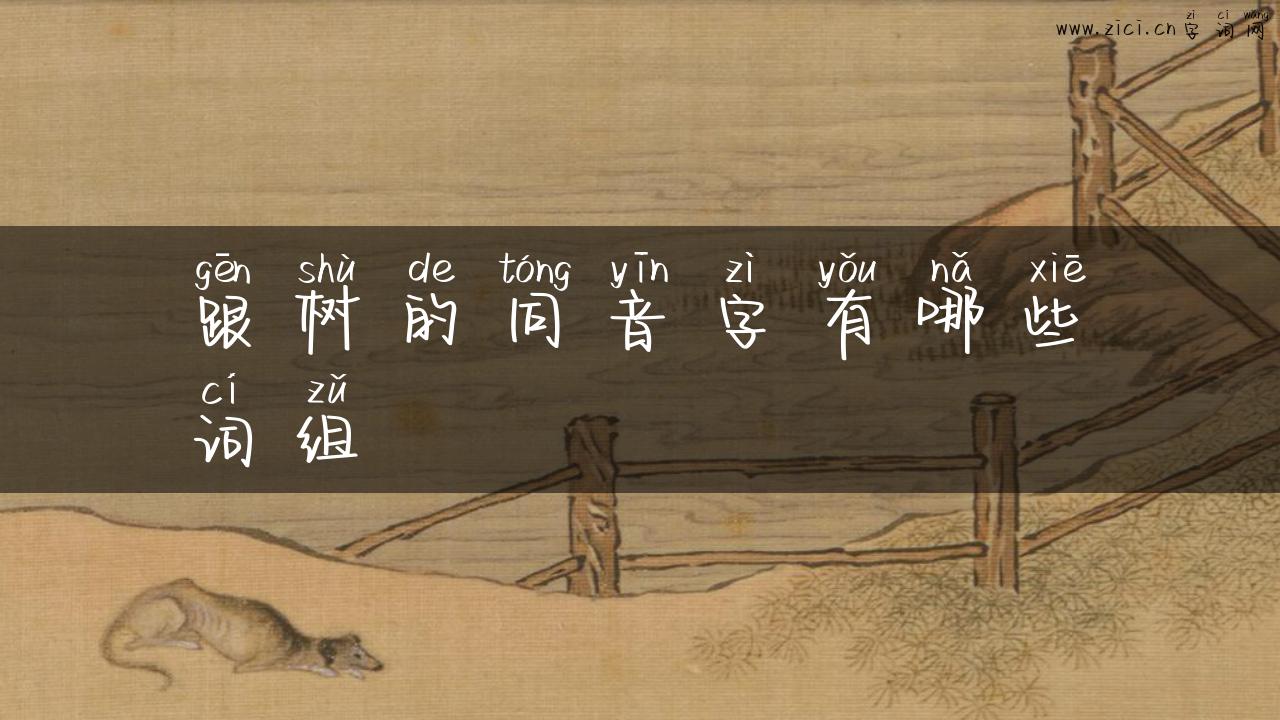 zì cí wǎng
www.zici.cn 字词网
gēn shù de tóng yīn zì yǒu nǎ xiē
跟树的同音字有哪些
cí zǔ
词组